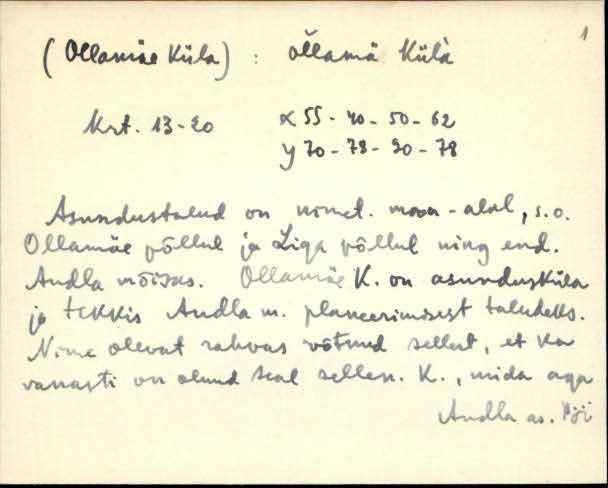 1
(Ollamäe Küla) : Ollamä Külà
Krt. 13-20 x 55 - 40 - 50 - 62
y 70 - 78 - 90 - 78
Asundustalud on nimet. maa-alal, s.o.
Ollamäe põllul ja Liga põllul ning end.
Audla mõisas. Ollamäe K. on asundusküla
ja tekkis Audla m. planeerimisest taludeks.
Nime olevat rahvas võtnud sellest, et ka
vanasti on olnud seal sellen. K., mida aga
Audla as.